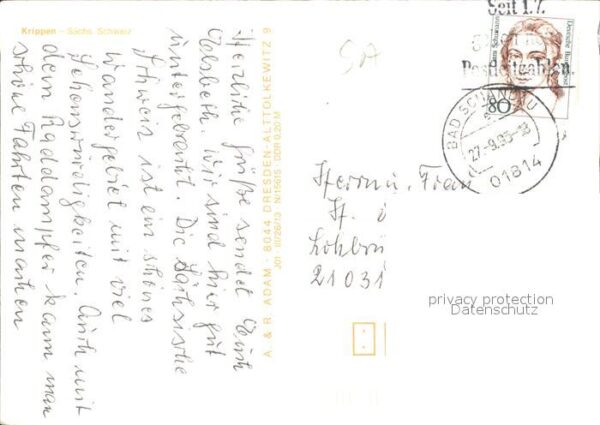 Krippen – Sächs. Schweiz
Herzliche Grüße sendet Euch
Elsbeth. Wir sind hier gut
untergebracht. Die Sächsische
Schweiz ist ein schönes
Wandergebiet mit viel
Sehenswürdigkeiten. Auch mit
dem Raddampfer kann man
schöne Fahrten machen
A. & R. ADAM · 8044 DRESDEN-ALTTOLKEWITZ 9
J01 III/26/13 N/15015 DDR 0,20 M
Seit 1.7.
Postleitzahlen.
Deutsche Bundespost
80
BAD SCHANDAU
27.-9.95.-18
01814
Herrn u. Frau
H.
21031
privacy protection
Datenschutz